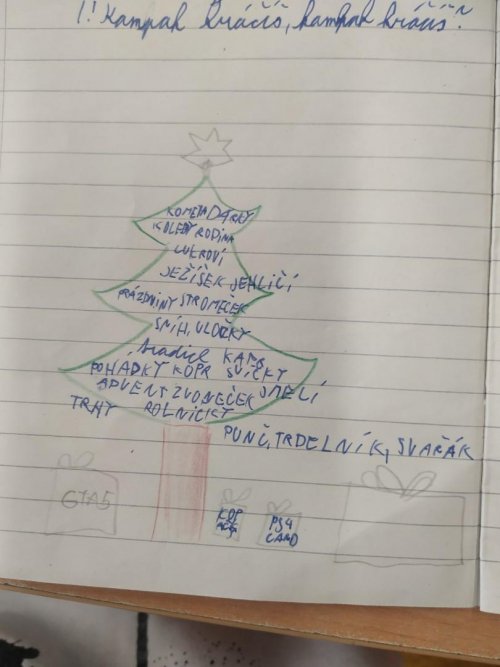 1! Kampak kráčíš, kampak kráčíš?
KOMETA DÁRKY
KOLEDY RODINA
CUKROVÍ
JEŽÍŠEK JEHLIČÍ
PRÁZDNINY STROMEČEK
SNÍH, VLOČKY
tradice KAPR
POHÁDKY KOPR SVÍČKY
ADVENT ZVONEČEK JMELÍ
TRHY ROLNIČKY
PUNČ, TRDELNÍK, SVAŘÁK
GTA5
PS4
CARD